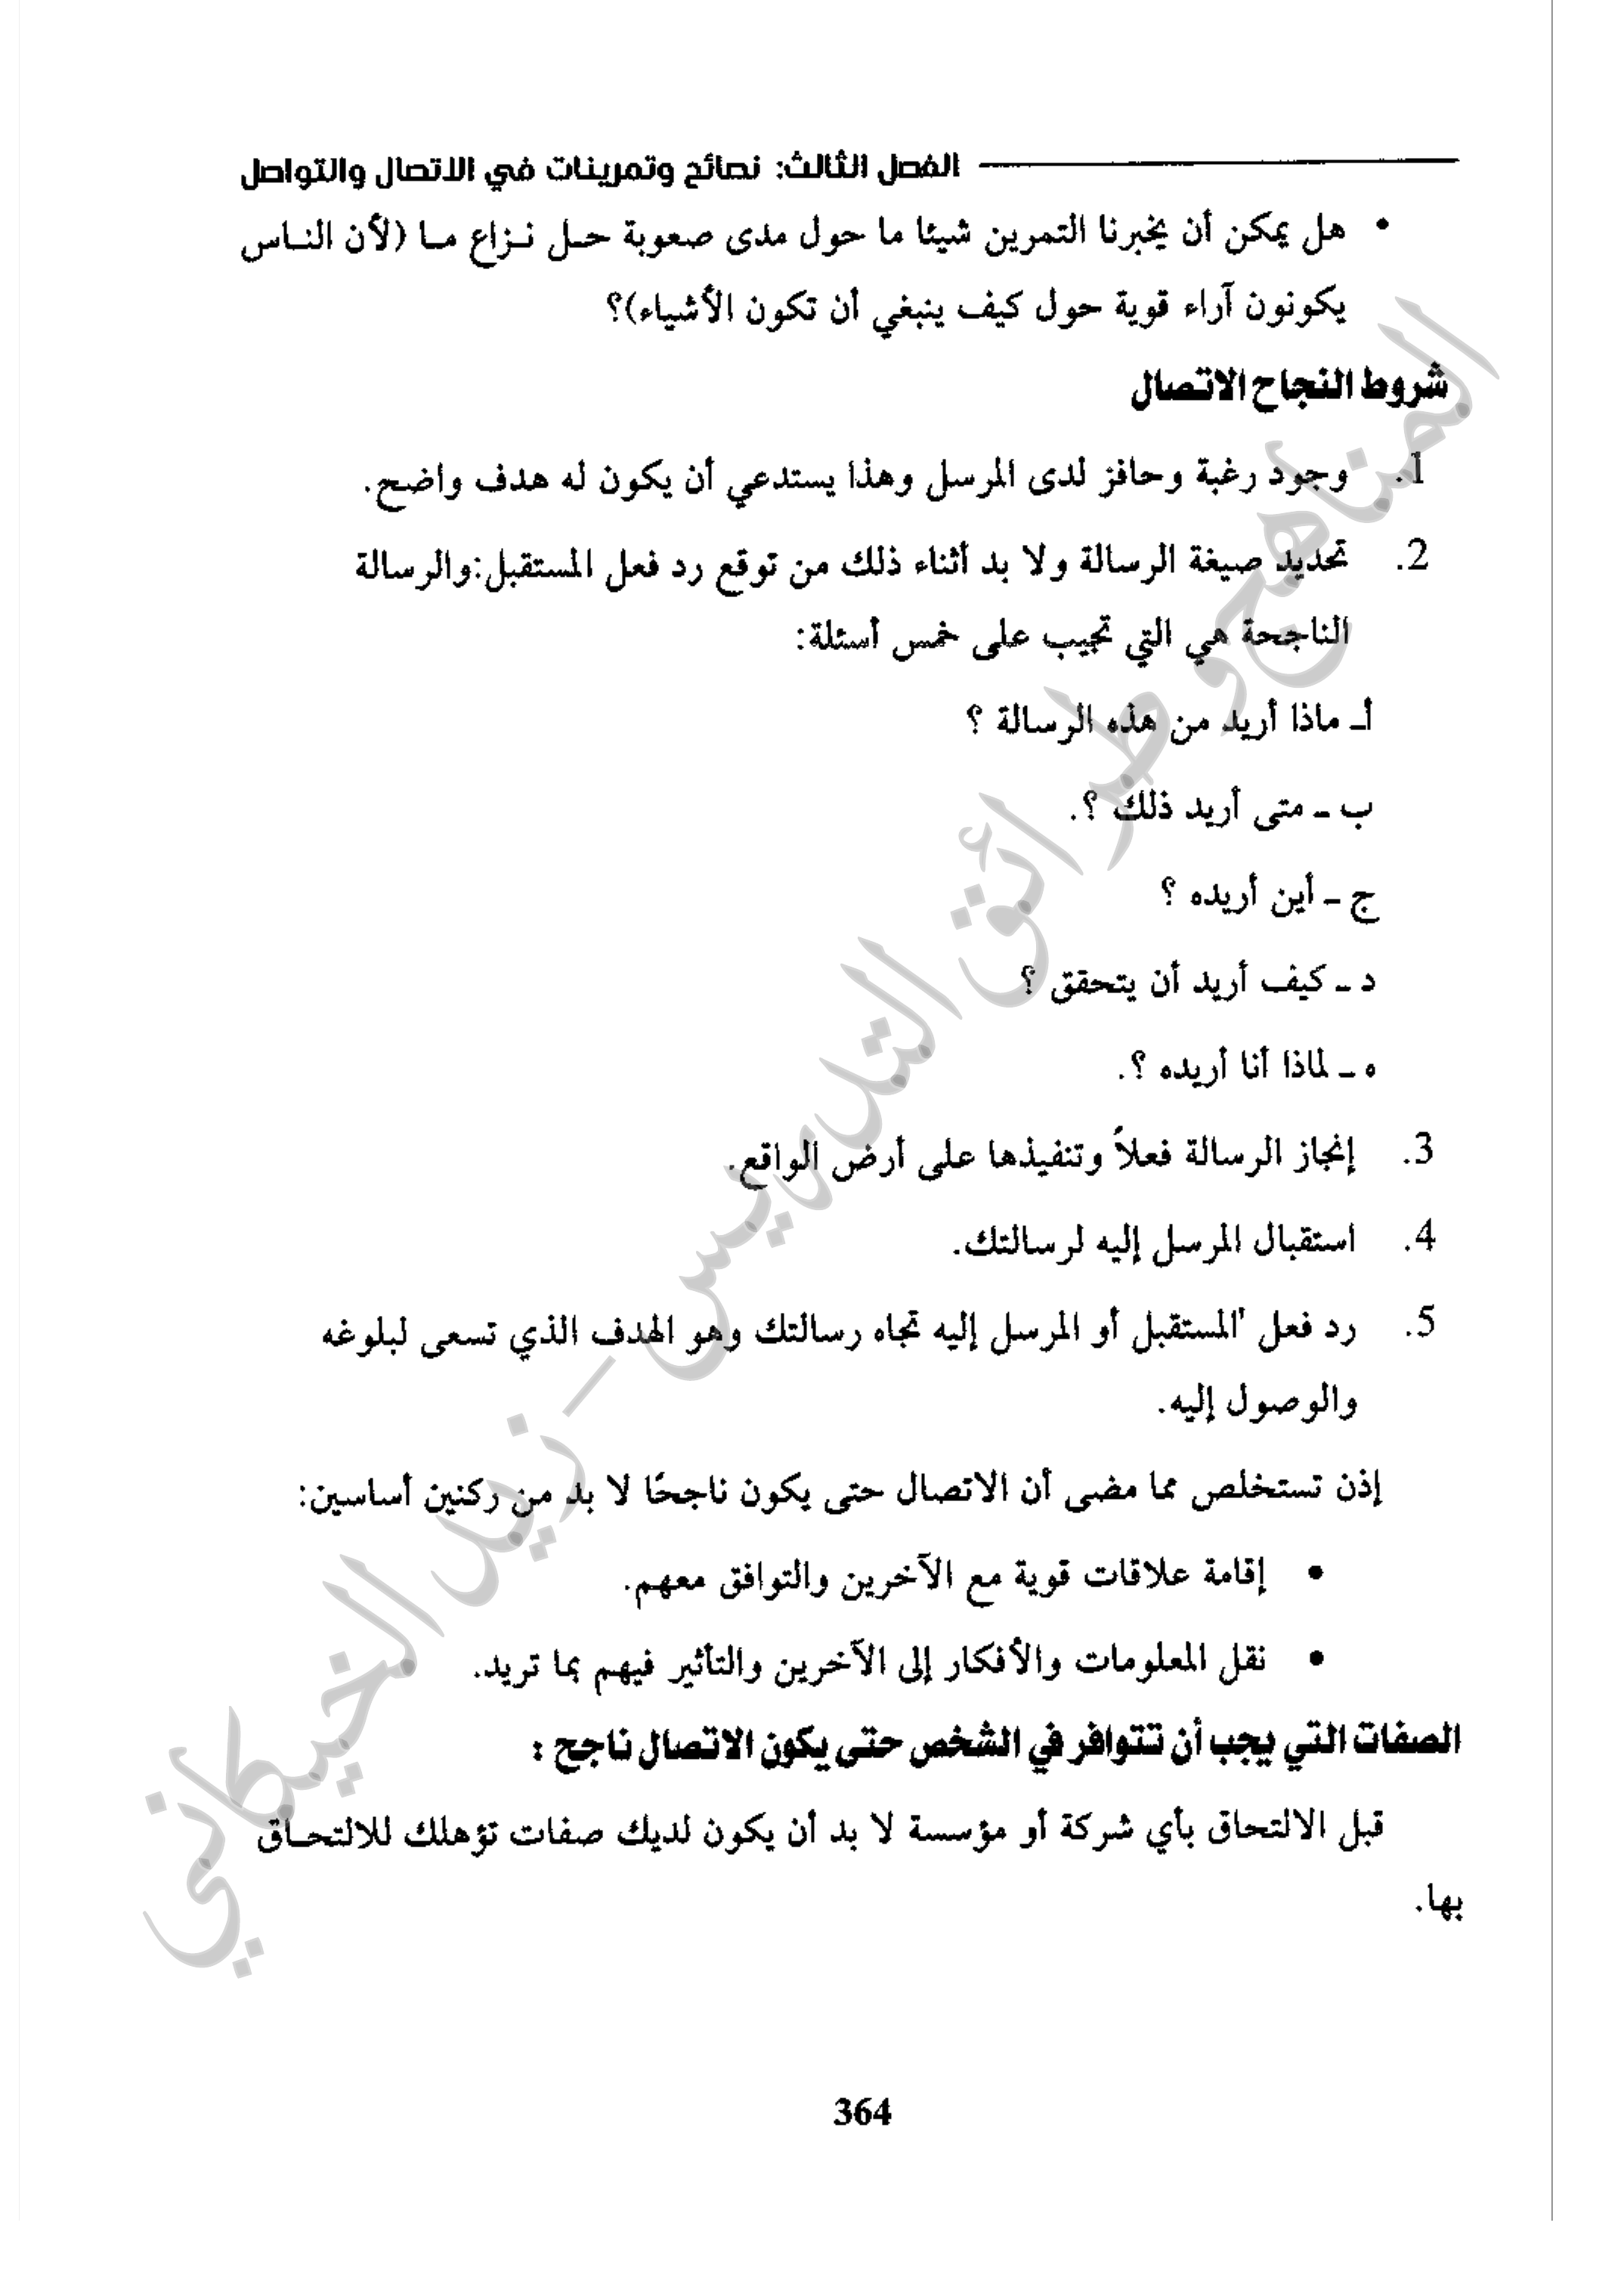 الفصل الثالث: نصائح وتمرينات في الاتصال والتواصل
• هل يمكن أن يخبرنا التمرين شيئا ما حول مدى صعوبة حـل نـزاع مـا (لأن النـاس
يكونون آراء قوية حول كيف ينبغي أن تكون الأشياء)؟
شروط النجاح الاتصال
1. وجود رغبة وحافز لدى المرسل وهذا يستدعي أن يكون له هدف واضح.
2. تحديد صيغة الرسالة ولا بد أثناء ذلك من توقع رد فعل المستقبل:والرسالة
الناجحة هي التي تجيب على خمس أسئلة:
أـ ماذا أريد من هذه الرسالة ؟
ب ـ متى أريد ذلك ؟.
ج ـ أين أريده ؟
د ـ كيف أريد أن يتحقق ؟
ه ـ لماذا أنا أريده ؟.
3. إنجاز الرسالة فعلاً وتنفيذها على أرض الواقع.
4. استقبال المرسل إليه لرسالتك.
5. رد فعل "المستقبل أو المرسل إليه تجاه رسالتك وهو الهدف الذي تسعى لبلوغه
والوصول إليه.
إذن تستخلص مما مضى أن الاتصال حتى يكون ناجحًا لا بد من ركنين أساسين:
• إقامة علاقات قوية مع الآخرين والتوافق معهم.
• نقل المعلومات والأفكار إلى الآخرين والتأثير فيهم بما تريد.
الصفات التي يجب أن تتوافر في الشخص حتى يكون الاتصال ناجح :
قبل الالتحاق بأي شركة أو مؤسسة لا بد أن يكون لديك صفات تؤهلك للالتحـاق
بها.
364
المناهج وطرائق التدريس - زيد الخيكاني